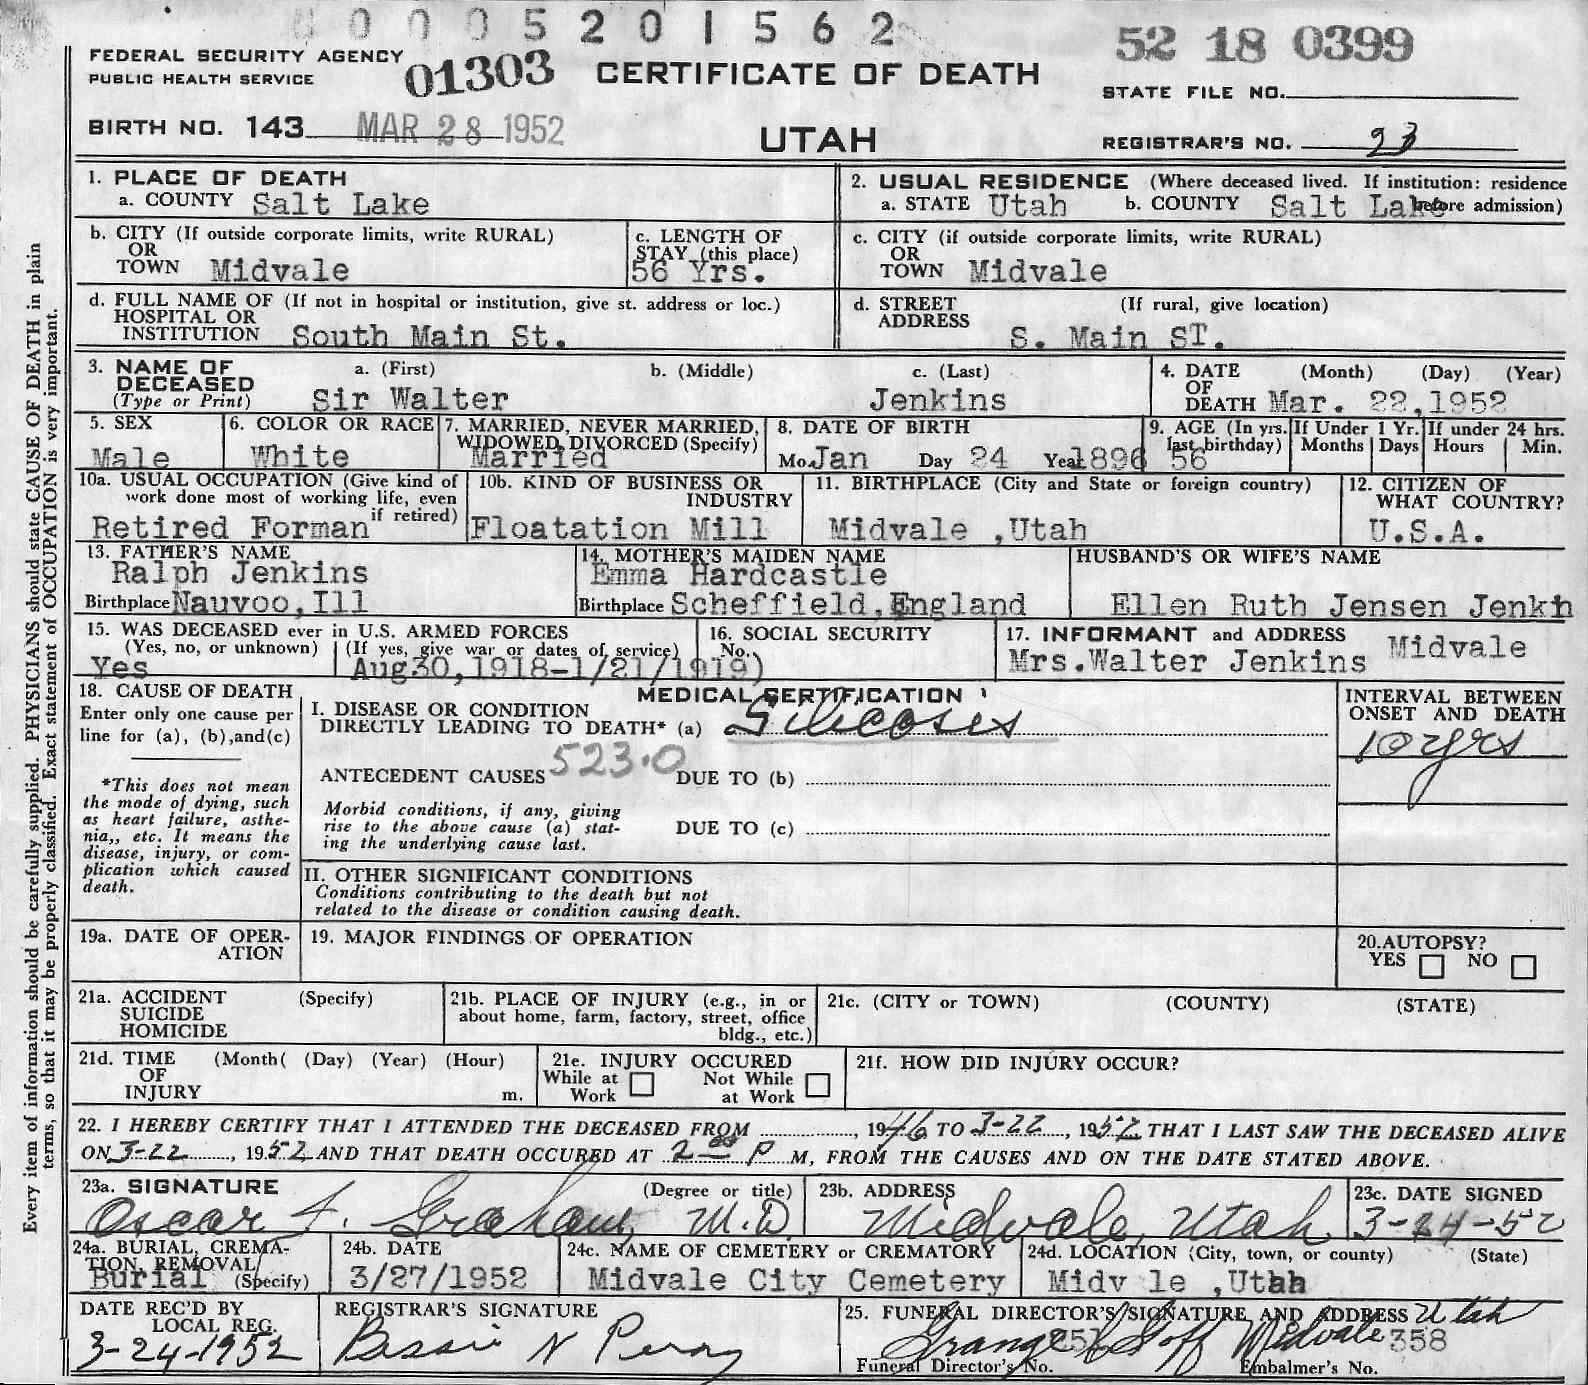 0005201562
FEDERAL SECURITY AGENCY
PUBLIC HEALTH SERVICE
01303
CERTIFICATE OF DEATH
52 18 0399
STATE FILE NO.
BIRTH NO. 143 MAR 28 1952
UTAH
REGISTRAR'S NO. 23
1. PLACE OF DEATH
a. COUNTY Salt Lake
2. USUAL RESIDENCE (Where deceased lived. If institution: residence before admission)
a. STATE Utah b. COUNTY Salt Lake
b. CITY (If outside corporate limits, write RURAL)
OR
TOWN Midvale
c. LENGTH OF
STAY (this place)
56 Yrs.
c. CITY (if outside corporate limits, write RURAL)
OR
TOWN Midvale
d. FULL NAME OF (If not in hospital or institution, give st. address or loc.)
HOSPITAL OR
INSTITUTION South Main St.
d. STREET (If rural, give location)
ADDRESS S. Main ST.
3. NAME OF a. (First) b. (Middle) c. (Last)
DECEASED
(Type or Print) Sir Walter Jenkins
4. DATE (Month) (Day) (Year)
OF
DEATH Mar. 22,1952
5. SEX
Male
6. COLOR OR RACE
White
7. MARRIED, NEVER MARRIED,
WIDOWED, DIVORCED (Specify)
Married
8. DATE OF BIRTH
Mo. Jan Day 24 Year 1896
9. AGE (In yrs.
last birthday)
56
If Under 1 Yr.
Months Days
If under 24 hrs.
Hours Min.
10a. USUAL OCCUPATION (Give kind of
work done most of working life, even
if retired)
Retired Forman
10b. KIND OF BUSINESS OR
INDUSTRY
Floatation Mill
11. BIRTHPLACE (City and State or foreign country)
Midvale ,Utah
12. CITIZEN OF
WHAT COUNTRY?
U.S.A.
13. FATHER'S NAME
Ralph Jenkins
Birthplace Nauvoo,Ill
14. MOTHER'S MAIDEN NAME
Emma Hardcastle
Birthplace Scheffield,England
HUSBAND'S OR WIFE'S NAME
Ellen Ruth Jensen Jenkn
15. WAS DECEASED ever in U.S. ARMED FORCES
(Yes, no, or unknown) (If yes, give war or dates of service)
Yes Aug30,1918-1/21/1919)
16. SOCIAL SECURITY
No.
17. INFORMANT and ADDRESS Midvale
Mrs.Walter Jenkins
18. CAUSE OF DEATH
Enter only one cause per
line for (a), (b),and(c)
*This does not mean
the mode of dying, such
as heart failure, asthe-
nia,, etc. It means the
disease, injury, or com-
plication which caused
death.
MEDICAL CERTIFICATION
I. DISEASE OR CONDITION
DIRECTLY LEADING TO DEATH* (a) Silicosis
ANTECEDENT CAUSES 523.0 DUE TO (b)
Morbid conditions, if any, giving
rise to the above cause (a) stat-
ing the underlying cause last.
DUE TO (c)
II. OTHER SIGNIFICANT CONDITIONS
Conditions contributing to the death but not
related to the disease or condition causing death.
INTERVAL BETWEEN
ONSET AND DEATH
10 yrs
19a. DATE OF OPER-
ATION
19. MAJOR FINDINGS OF OPERATION
20.AUTOPSY?
YES NO
21a. ACCIDENT (Specify)
SUICIDE
HOMICIDE
21b. PLACE OF INJURY (e.g., in or
about home, farm, factory, street, office
bldg., etc.)
21c. (CITY or TOWN) (COUNTY) (STATE)
21d. TIME (Month( (Day) (Year) (Hour)
OF
INJURY m.
21e. INJURY OCCURED
While at Work Not While at Work
21f. HOW DID INJURY OCCUR?
22. I HEREBY CERTIFY THAT I ATTENDED THE DECEASED FROM , 1946 TO 3-22, 1952 THAT I LAST SAW THE DECEASED ALIVE
ON 3-22, 1952 AND THAT DEATH OCCURED AT 2 00 P M, FROM THE CAUSES AND ON THE DATE STATED ABOVE.
23a. SIGNATURE (Degree or title)
Oscar F. Graham, M.D.
23b. ADDRESS
Midvale, Utah
23c. DATE SIGNED
3-24-52
24a. BURIAL, CREMA-
TION, REMOVAL
Burial (Specify)
24b. DATE
3/27/1952
24c. NAME OF CEMETERY or CREMATORY
Midvale City Cemetery
24d. LOCATION (City, town, or county) (State)
Midv le ,Utah
DATE REC'D BY
LOCAL REG.
3-24-1952
REGISTRAR'S SIGNATURE
Bessie N Perry
25. FUNERAL DIRECTOR'S SIGNATURE AND ADDRESS Utah
Goff Midvale
Funeral Director's No. Embalmer's No. 358
Every item of information should be carefully supplied. PHYSICIANS should state CAUSE OF DEATH in plain
terms, so that it may be properly classified. Exact statement of OCCUPATION is very important.